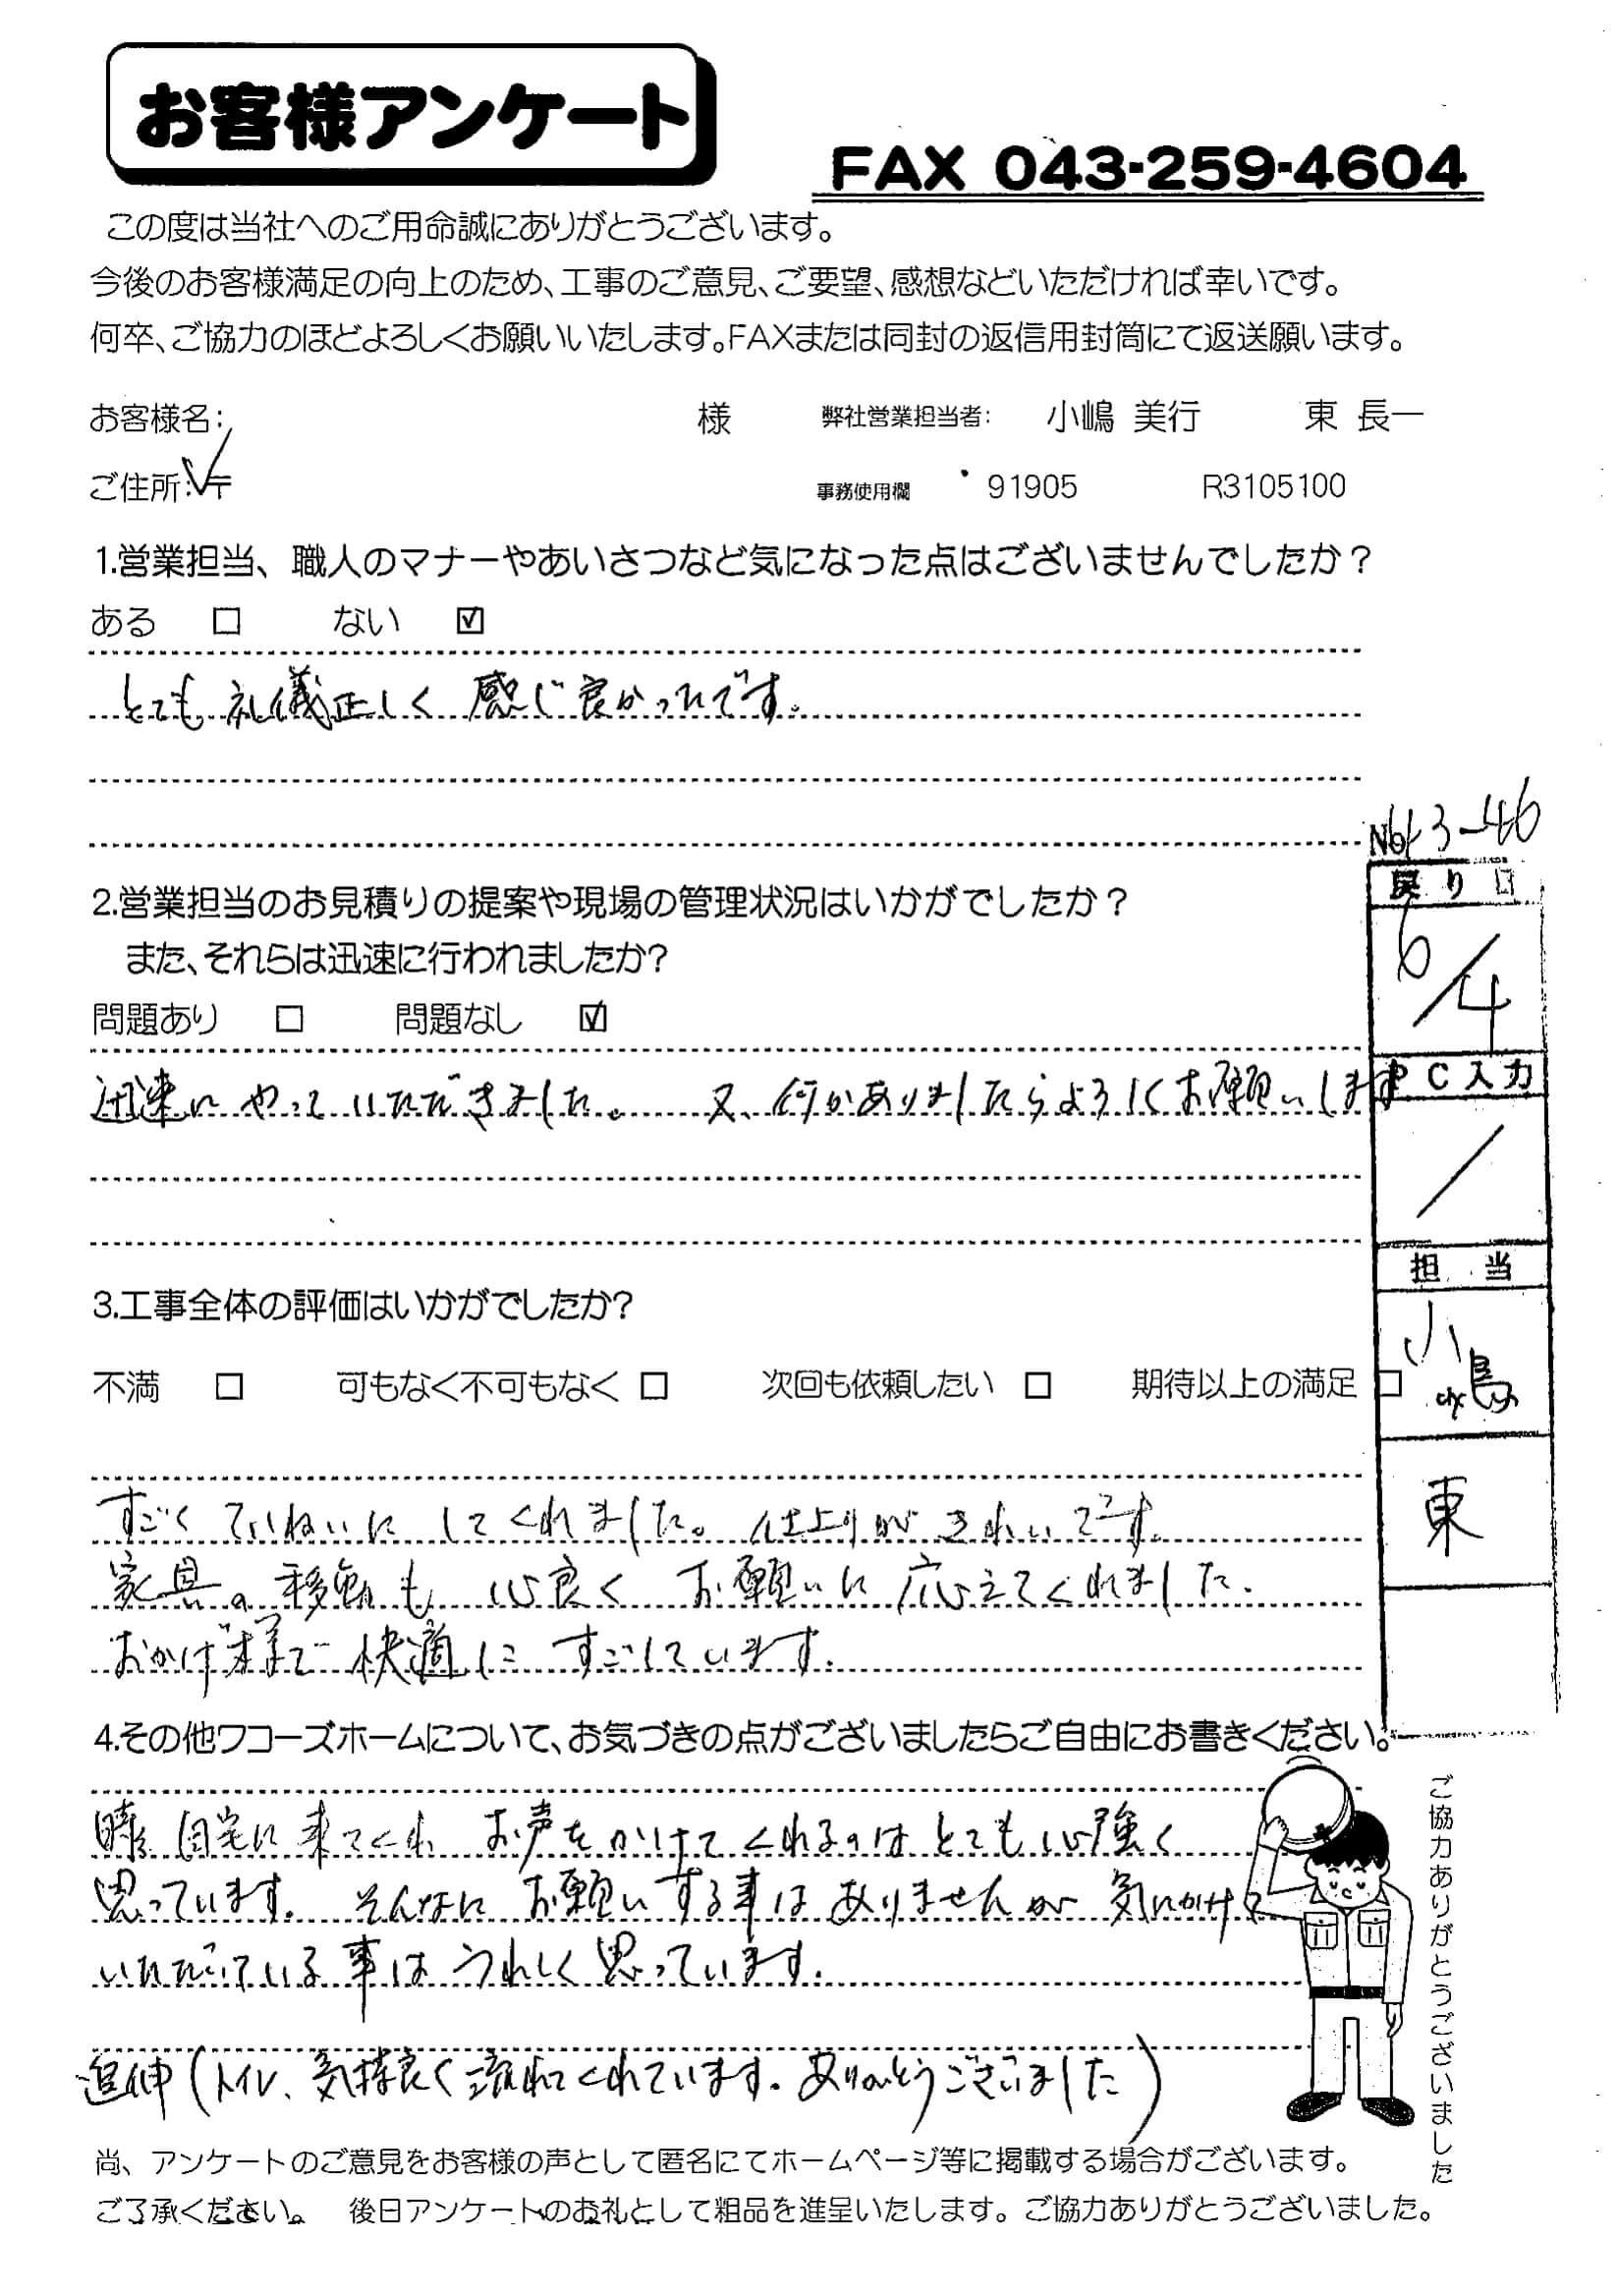 お客様アンケート
FAX 043-259-4604
この度は当社へのご用命誠にありがとうございます。
今後のお客様満足の向上のため、工事のご意見、ご要望、感想などいただければ幸いです。
何卒、ご協力のほどよろしくお願いいたします。FAXまたは同封の返信用封筒にて返送願います。
お客様名: 様 弊社営業担当者: 小嶋 美行 東 長一
ご住所:〒 事務使用欄 91905 R3105100
1.営業担当、職人のマナーやあいさつなど気になった点はございませんでしたか？
ある □ ない ☑
とても礼儀正しく 感じ良かったです。
2.営業担当のお見積りの提案や現場の管理状況はいかがでしたか？
また、それらは迅速に行われましたか?
問題あり □ 問題なし ☑
迅速にやっていただきました。 又、何かありましたらよろしくお願いします
3.工事全体の評価はいかがでしたか?
不満 □ 可もなく不可もなく □ 次回も依頼したい □ 期待以上の満足 □
すごく ていねいに してくれました。仕上りが きれいです。
家具の移動も 心良く お願いに 応えてくれました.
おかげ様で 快適に すごしています.
4.その他ワコーズホームについて、お気づきの点がございましたらご自由にお書きください。
時々 自宅に来てくれ お声をかけてくれるのは とても心強く
思っています. そんなに お願いする事は ありませんが 気にかけて
いただいている事は うれしく思っています.
追伸 (トイレ、気持良く流れてくれています。ありがとうございました)
尚、アンケートのご意見をお客様の声として匿名にてホームページ等に掲載する場合がございます。
ご了承ください。 後日アンケートのお礼として粗品を進呈いたします。ご協力ありがとうございました。
戻り日
6/4
PC入力
/
担 当
小嶋
東
ご協力ありがとうございました